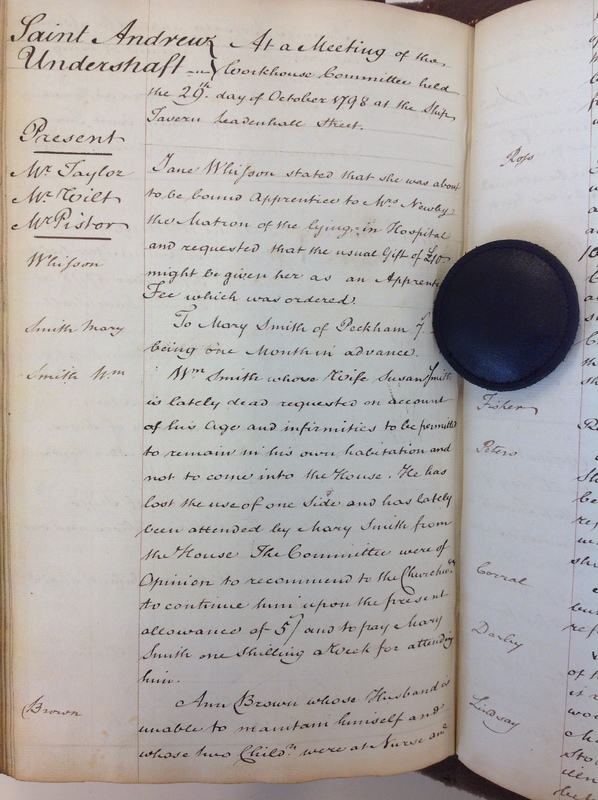 Saint Andrew
Undershaft
At a Meeting of the
Workhouse Committee held
the 29th. day of October 1798 at the Ship
Tavern Leadenhall Street.
Present
Mr Taylor
Mr Wilt
Mr Pistor
Whisson
Jane Whisson stated that she was about
to be bound Apprentice to Mrs Newby
the Matron of the lying-in Hospital
and requested that the usual Gift of £10
might be given her as an Apprentice
Fee which was ordered.
Smith Mary
To Mary Smith of Peckham
being one Month in advance.
Smith Wm
Wm Smith whose Wife Susan Smith
is lately dead requested on account
of his Age and infirmities to be permitted
to remain in his own habitation and
not to come into the House. He has
lost the use of one Side and has lately
been attended by Mary Smith from
the House The Committee were of
Opinion to recommend to the Churchwns
to continue him upon the present
allowance of 5/ and to pay Mary
Smith one shilling a Week for attending
him.
Brown
Ann Brown whose Husband is
unable to maintain himself and
whose two Childn were at Nurse and
Ross
Fisher
Peters
Corral
Darby
Lindsay